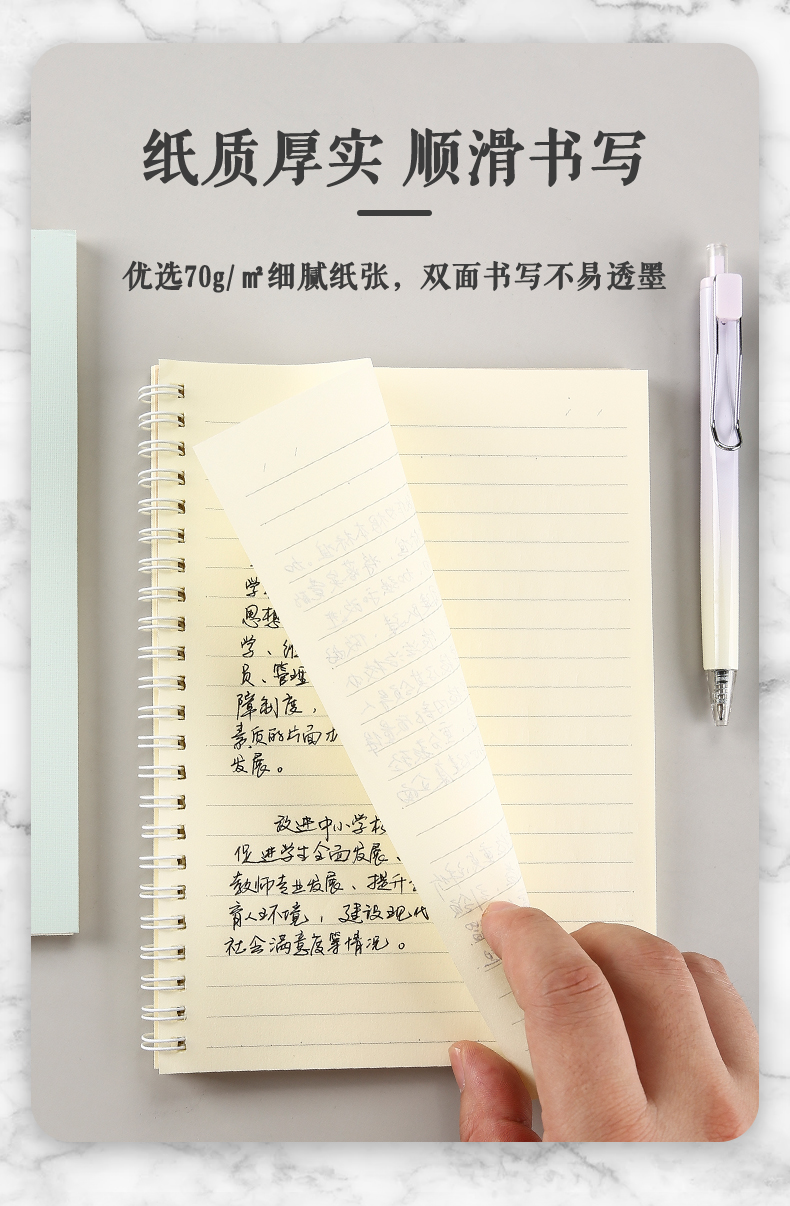 纸质厚实 顺滑书写
优选70g/㎡细腻纸张，双面书写不易透墨
学、
思想
学、组
员、管理
障制度，
素质的片面
发展。
改进中小学校
促进学生全面发展、
教师专业发展、提升
育人环境，建设现代
社会满意度等情况。